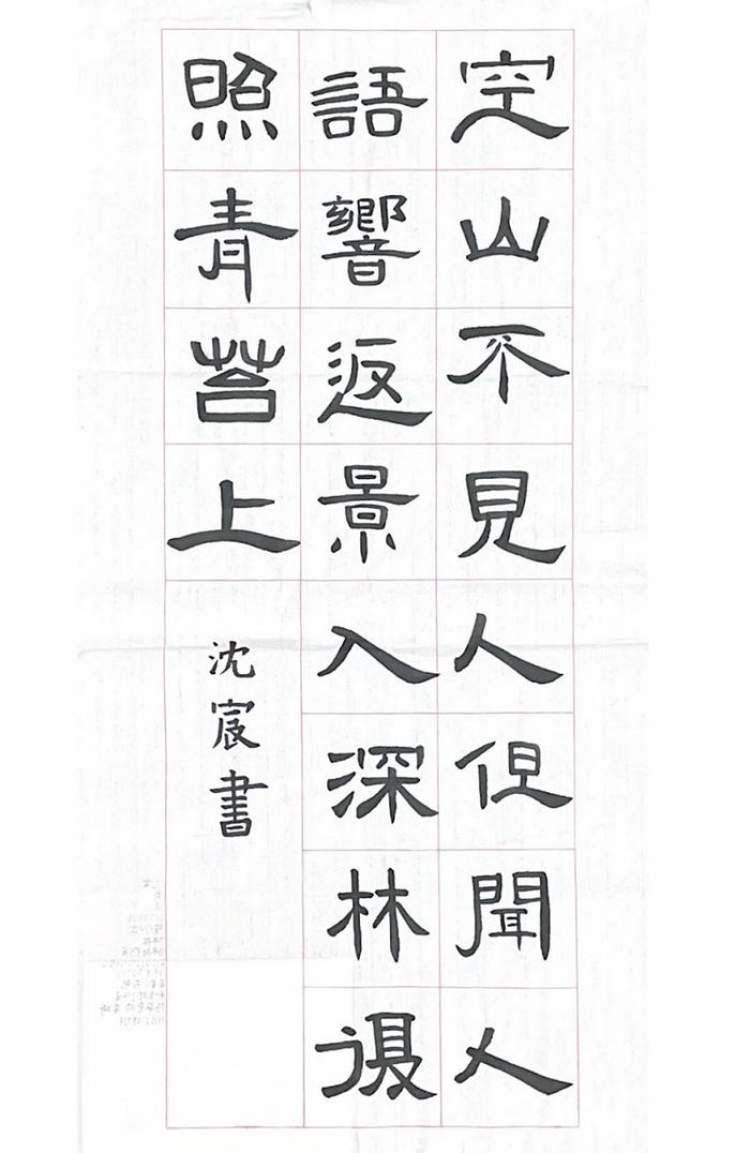 空山不見人但聞人
語響返景入深林復
照青苔上
沈宸書